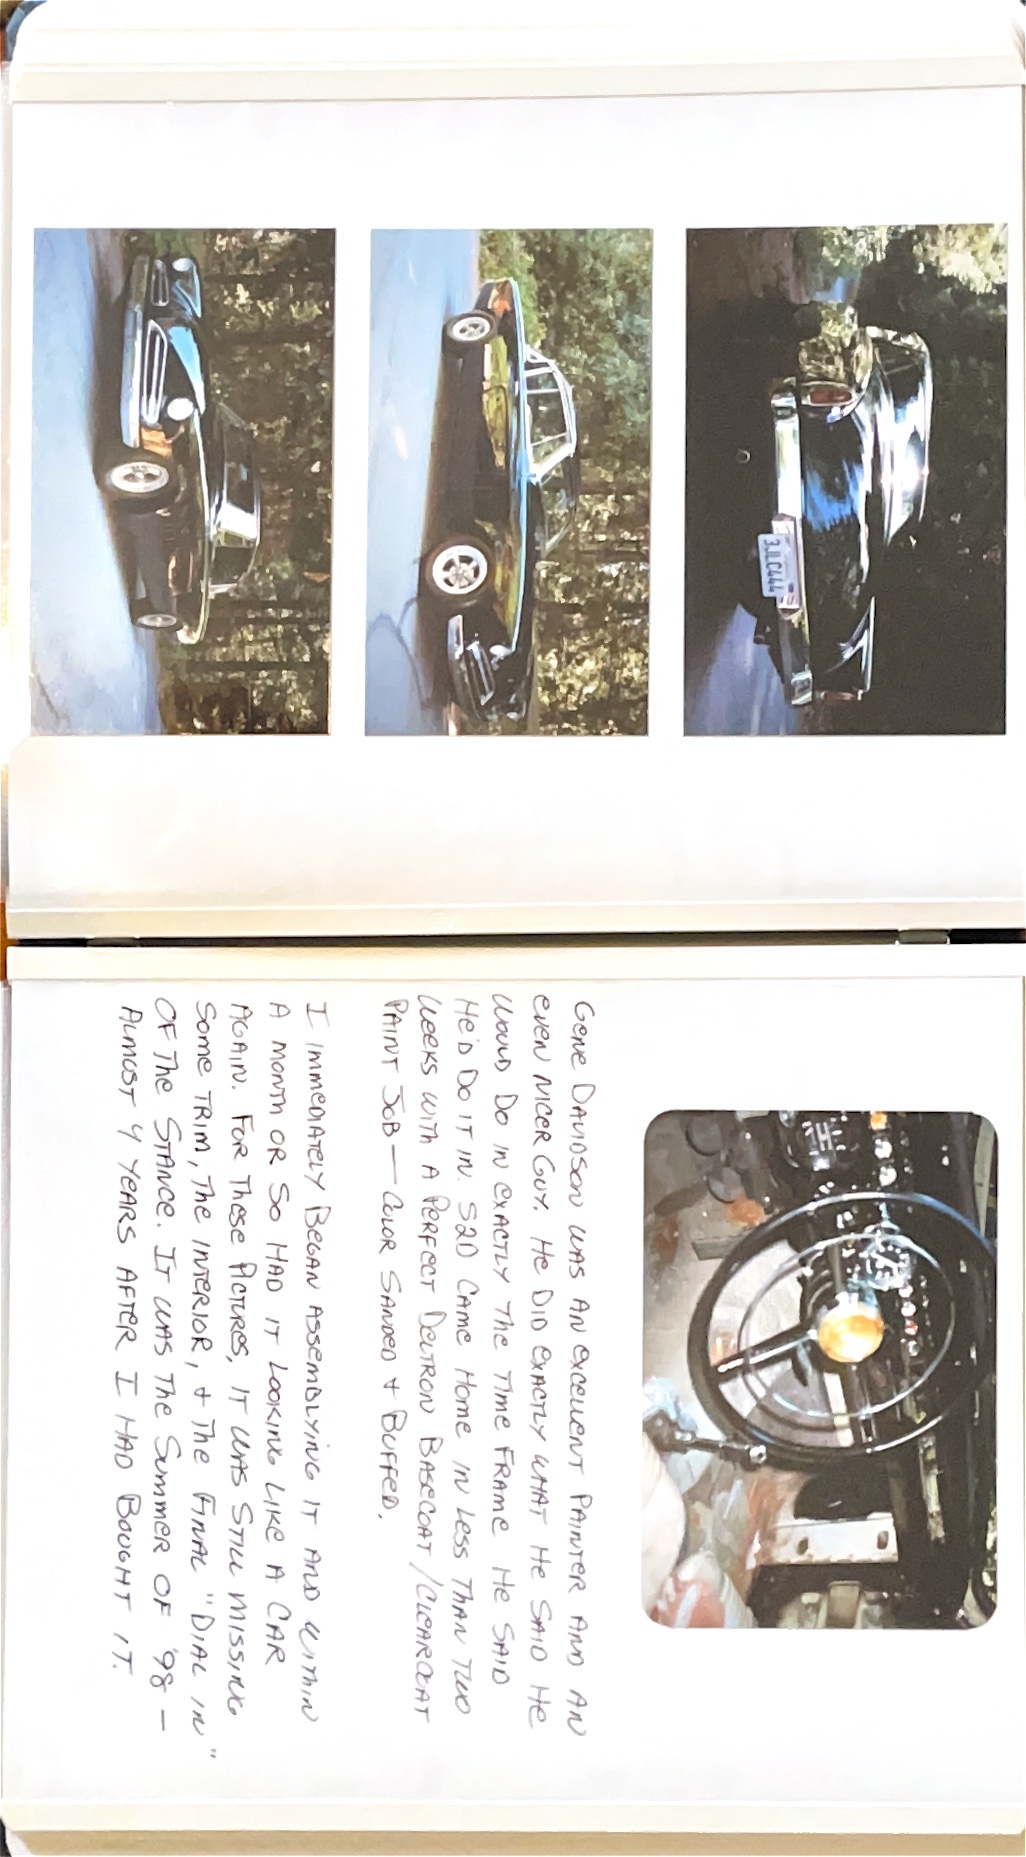 3JLC444
Gene Davidson was an excellent painter and an
even nicer guy. He did exactly what he said he
would do in exactly the time frame he said
he'd do it in. S2D came home in less than two
weeks with a perfect Deltron basecoat/clearcoat
paint job — color sanded + buffed.
I immediately began assemblying it and within
a month or so had it looking like a car
again. For these pictures, it was still missing
some trim, the interior, + the final "dial in"
of the stance. It was the summer of '98 —
almost 4 years after I had bought it.